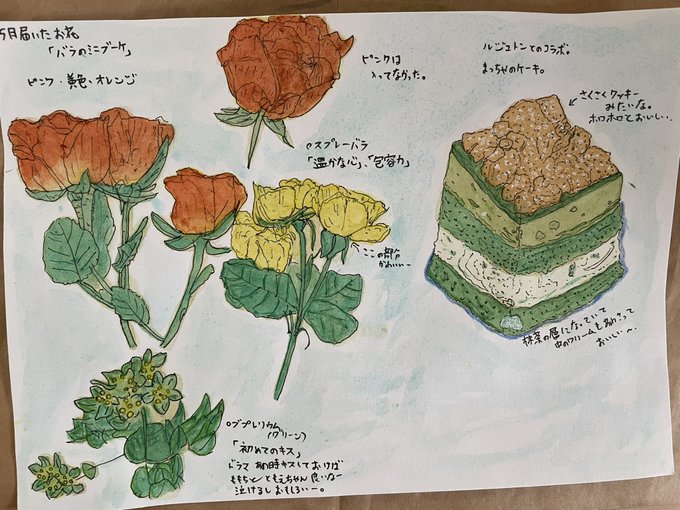 5月届いたお花
「バラのミニブーケ」
ピンク・黄色、オレンジ
ピンクは
入ってなかった。
○スプレーバラ
「温かな心」、「包容力」
ここの部分
かわいいー
ルジュトンとのコラボ。
まっちゃのケーキ。
さくさくクッキー
みたいな。
ホロホロでおいしい..
抹茶の層になっていて
中のクリームもあまさって
おいしい〜
○ブプレリウム
(グリーン)
「初めてのキス」
ドラマ あの時キスしておけば
ももちとともえちゃん良いなー
泣けるしおもしろいー。